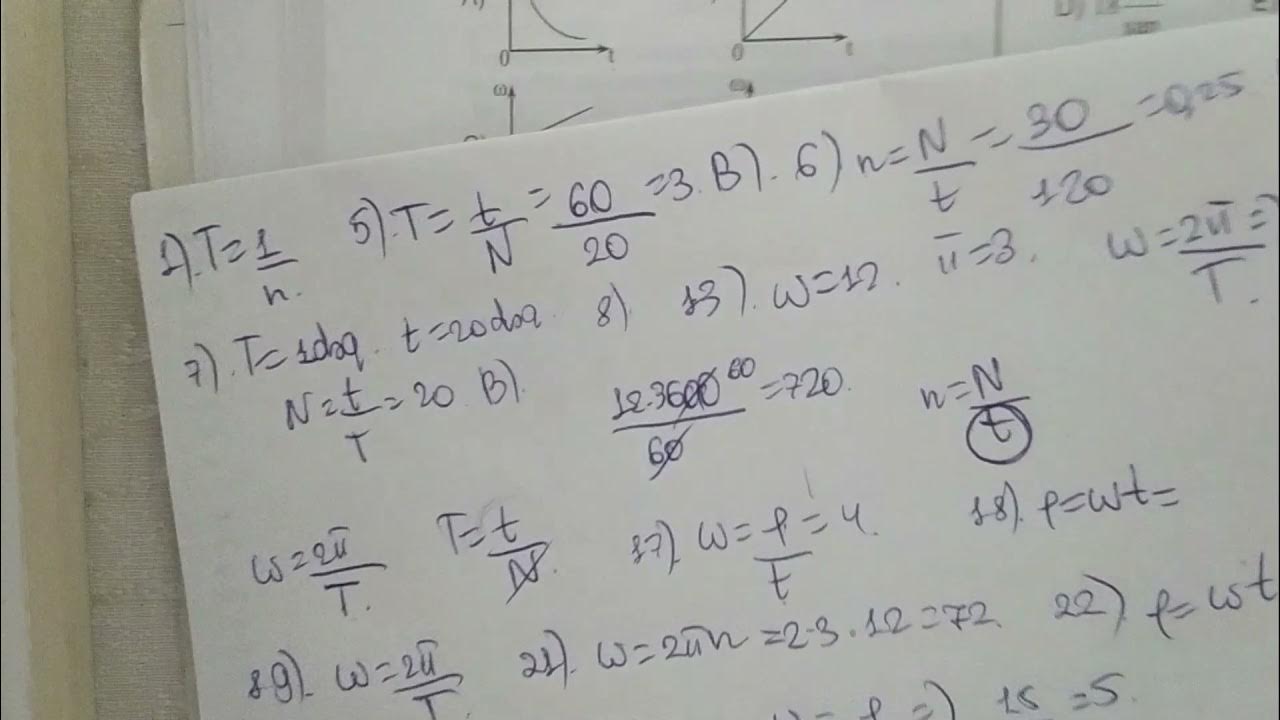 0 t 0 t
ω
1). T=1/n. 5). T=t/N=60/20=3. B). 6) n=N/t=30/120=0,25
7). T=1dəq. t=20dəq. 8). 13). ω=12. π=3. ω=2π/T. =>
N=t/T=20 B). 12·3600/60 60 =720. n=N/t
ω=2π/T. T=t/N. 17). ω=φ/t=4. 18). φ=ωt=
19). ω=2π/T 21). ω=2πn=2·3·12=72. 22) φ=ωt
15 =5.